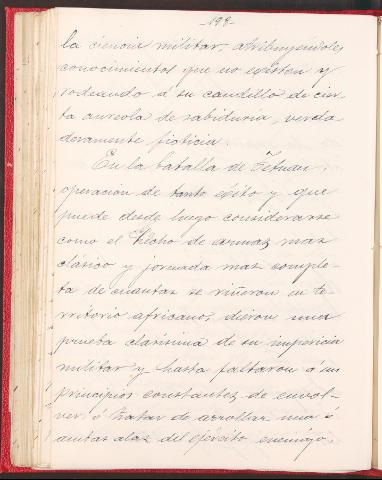 -198-
la ciencia militar, atribuyéndoles
conocimientos que no existen y
rodeando á su caudillo de cier-
ta aureola de sabiduria, verda-
deramente ficticia.
En la batalla de Tetuan,
operación de tanto éxito y que
puede desde luego considerarse
como el hecho de armas mas
clásico y jornada mas comple-
ta de cuantas se riñeron en te-
rritorio africano, dieron una
prueba clarísima de su impericia
militar y hasta faltaron á sus
principios constantes de envol-
ver ó tratar de arrollar una ó
ambas alas del ejército enemigo,